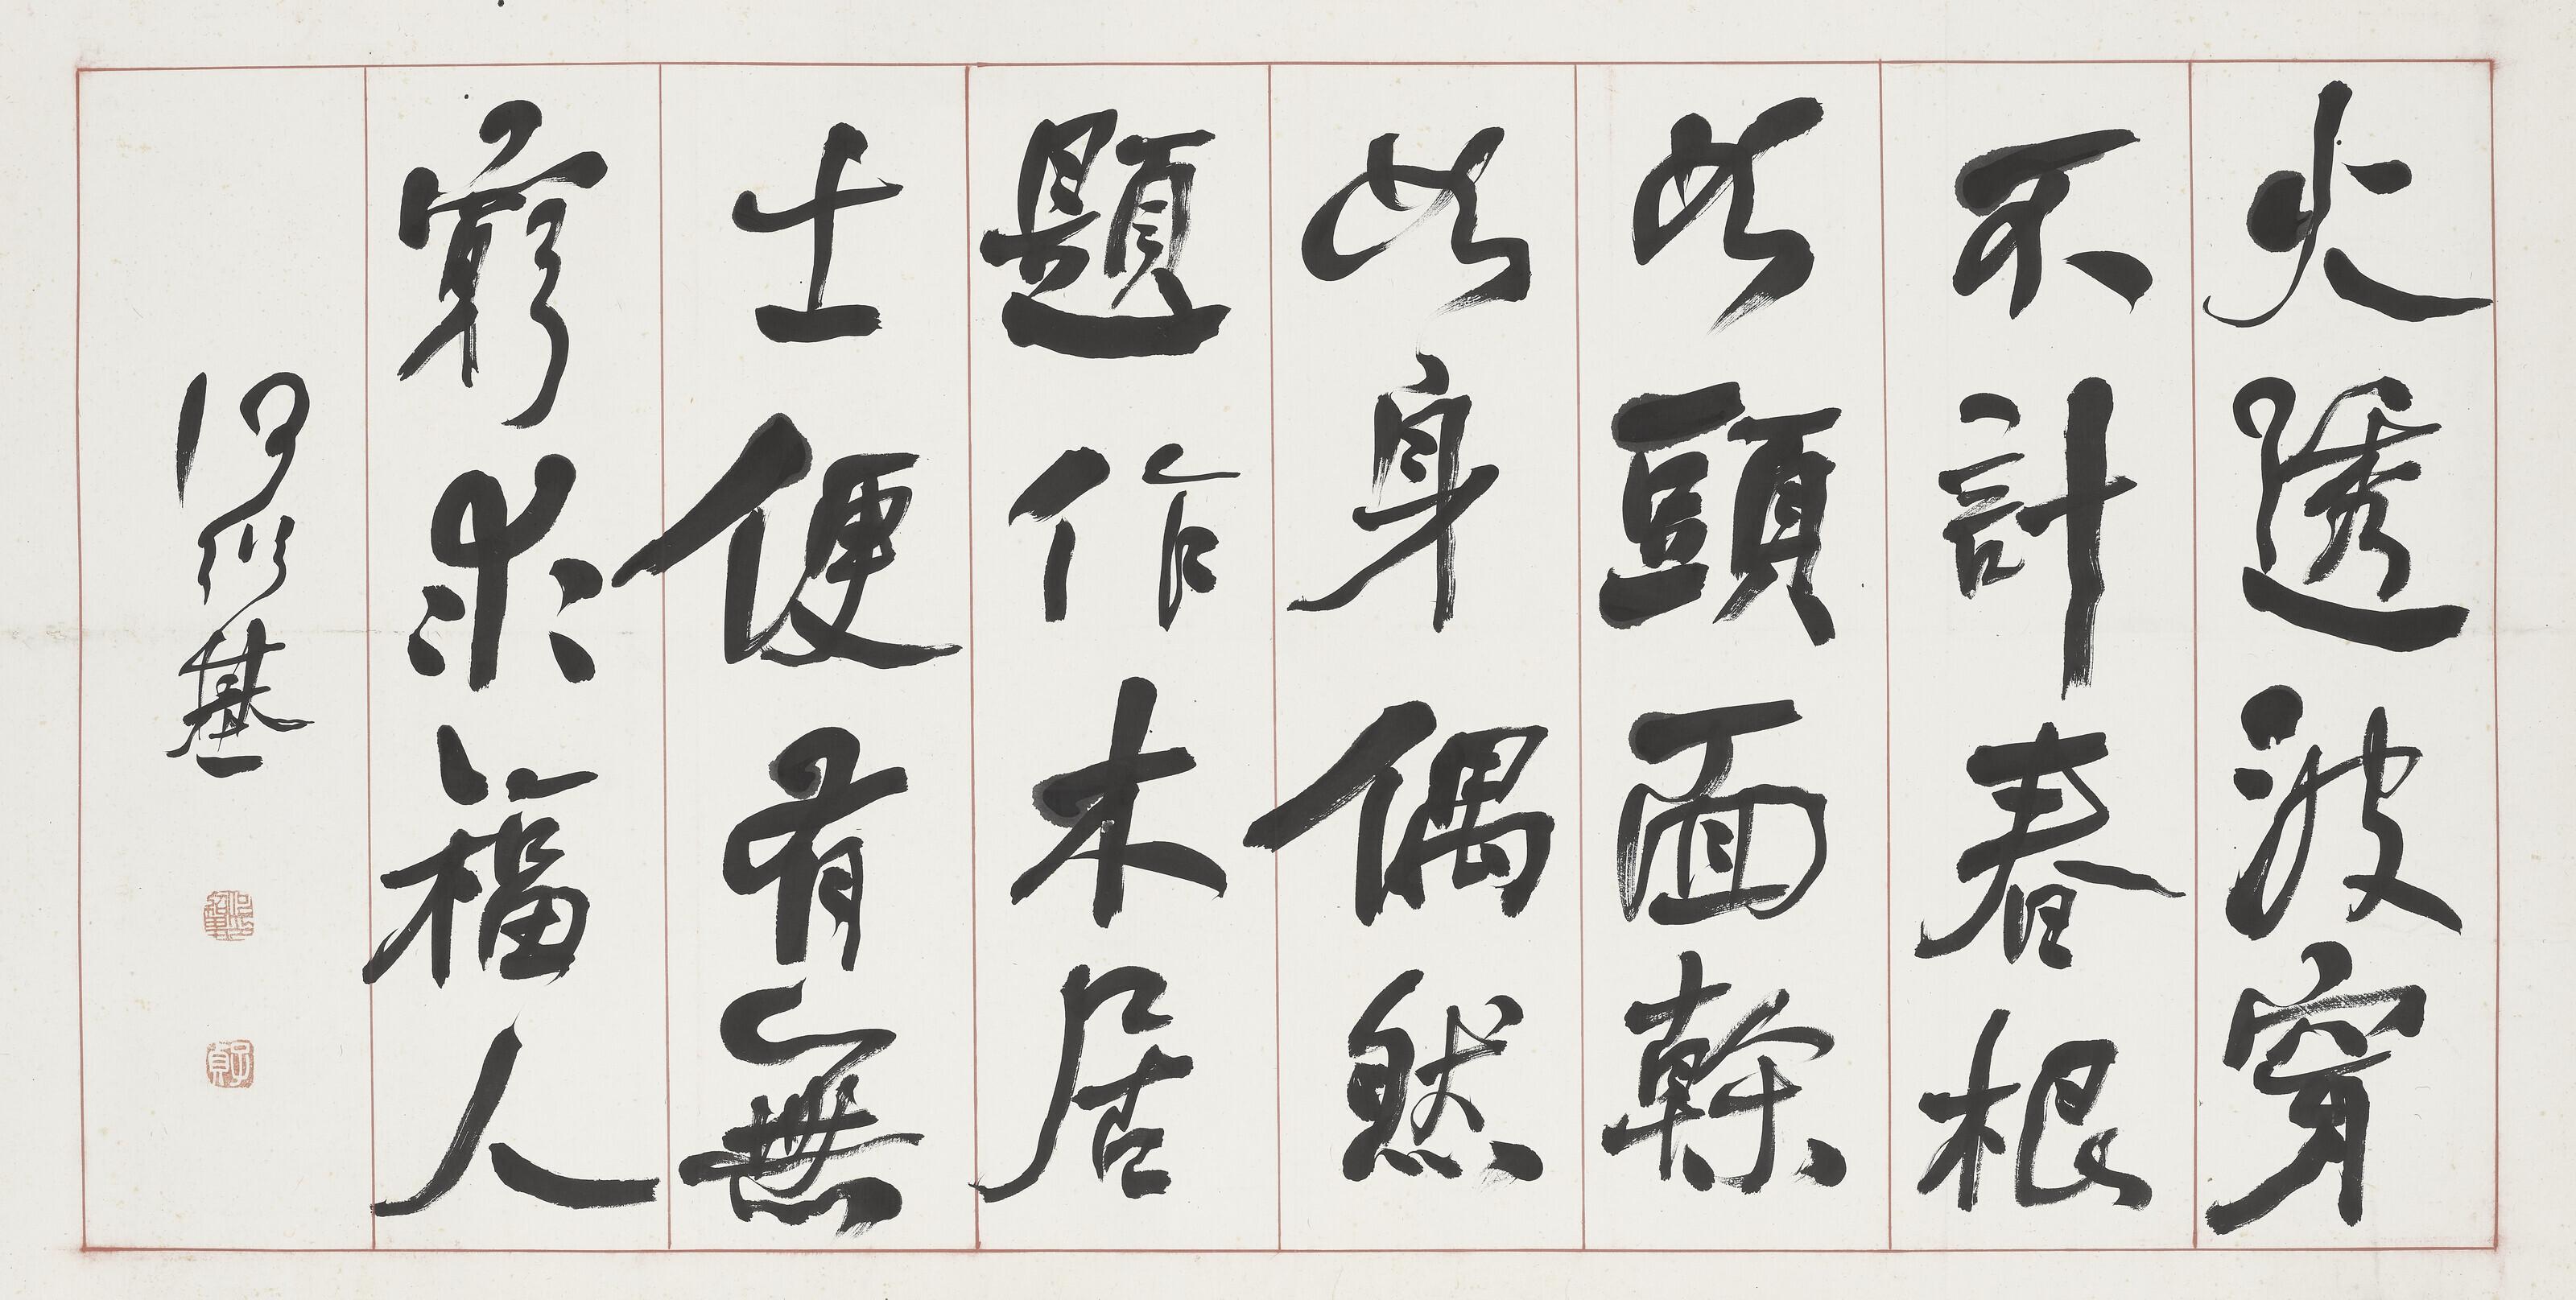 火透波穿
不計春根
如頭面幹
如身偶然
題作木居
士便有無
窮求福人
何紹基
子貞